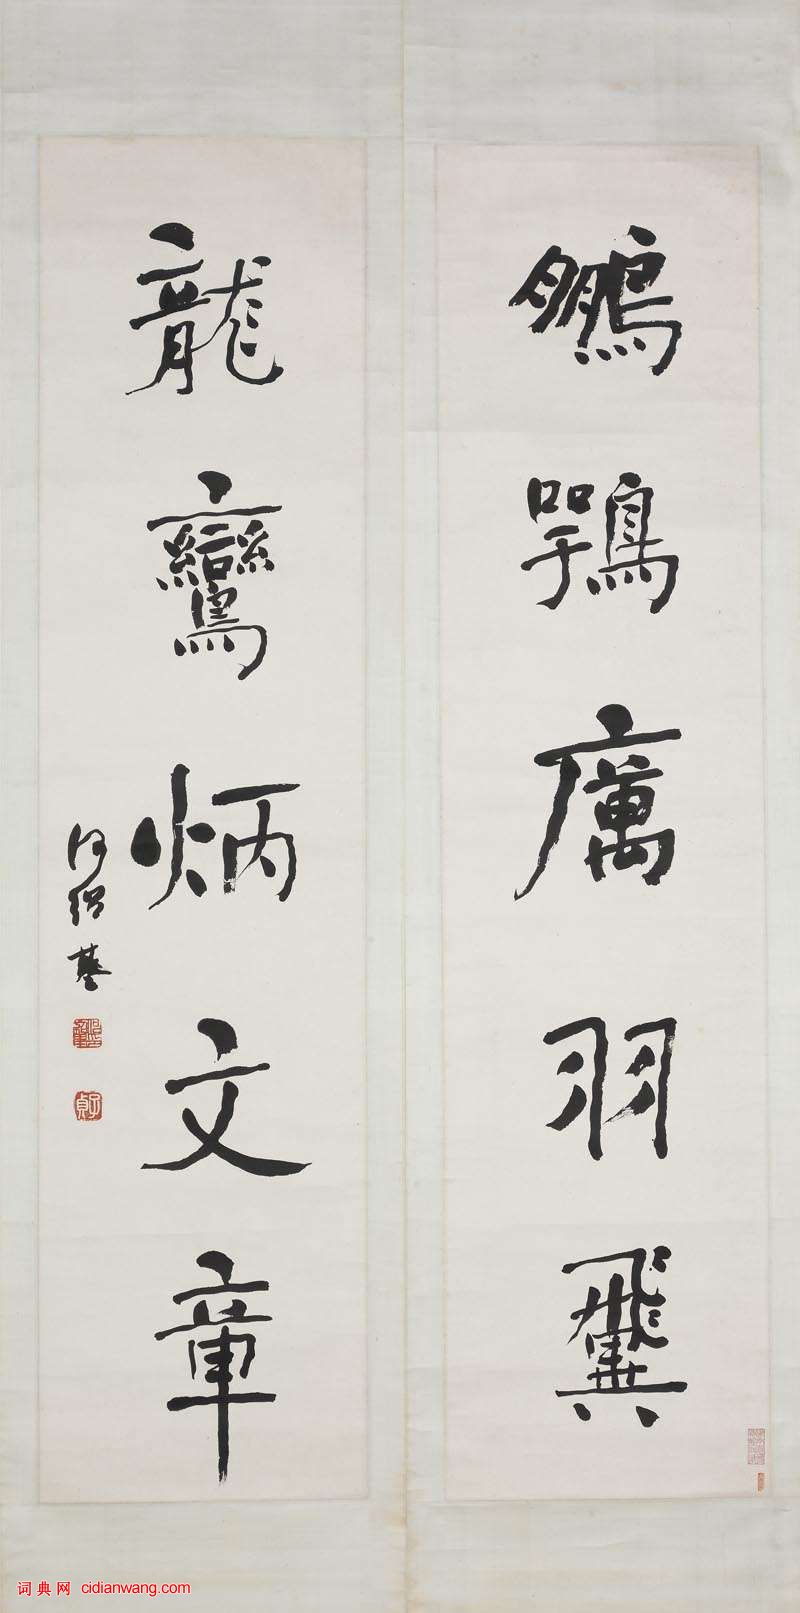 鵬鶚厲羽䨽
龍鸞炳文章
何紹基
子貞
词典网 cidianwang.com